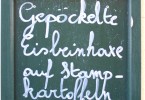 Gepöckelte
Eisbeinhaxe
auf Stamp-
kartoffeln